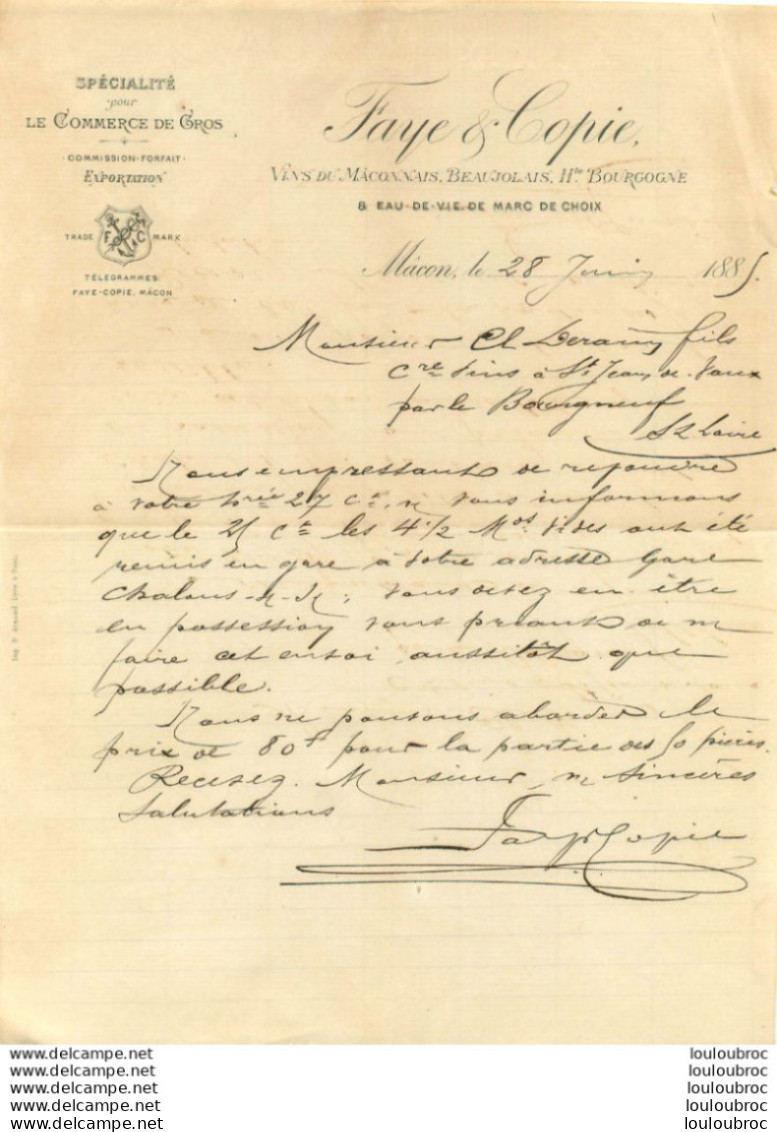 SPÉCIALITÉ
pour
LE COMMERCE DE GROS
COMMISSION-FORFAIT
EXPORTATION
TRADE MARK
F C
TÉLÉGRAMMES
FAYE-COPIE, MÂCON
Faye & Copie,
VINS DU MÂCONNAIS, BEAUJOLAIS, Hte BOURGOGNE
& EAU-DE-VIE DE MARC DE CHOIX
Mâcon, le 28 Juin 1885.
Monsieur Cl fils
Cre Vins à St Jean de Vaux
par le Bourgneuf
S & Loire
Nous empressant de repondre
à votre 27 Ct, vous informons
que le 25 Ct les 4 1/2 Mds vides ont été
remis en gare à votre adresse Gare
Chalons-s-S; vous devez en être
en possession vous priant de n/
faire cet envoi aussitôt que
possible.
Nous ne pouvons aborder le
prix de 80f pour la partie des 50 pièces.
Recevez, Monsieur, n/ sincères
Salutations
Faye Copie
www.delcampe.net
www.delcampe.net
www.delcampe.net
www.delcampe.net
www.delcampe.net
louloubroc
louloubroc
louloubroc
louloubroc
louloubroc